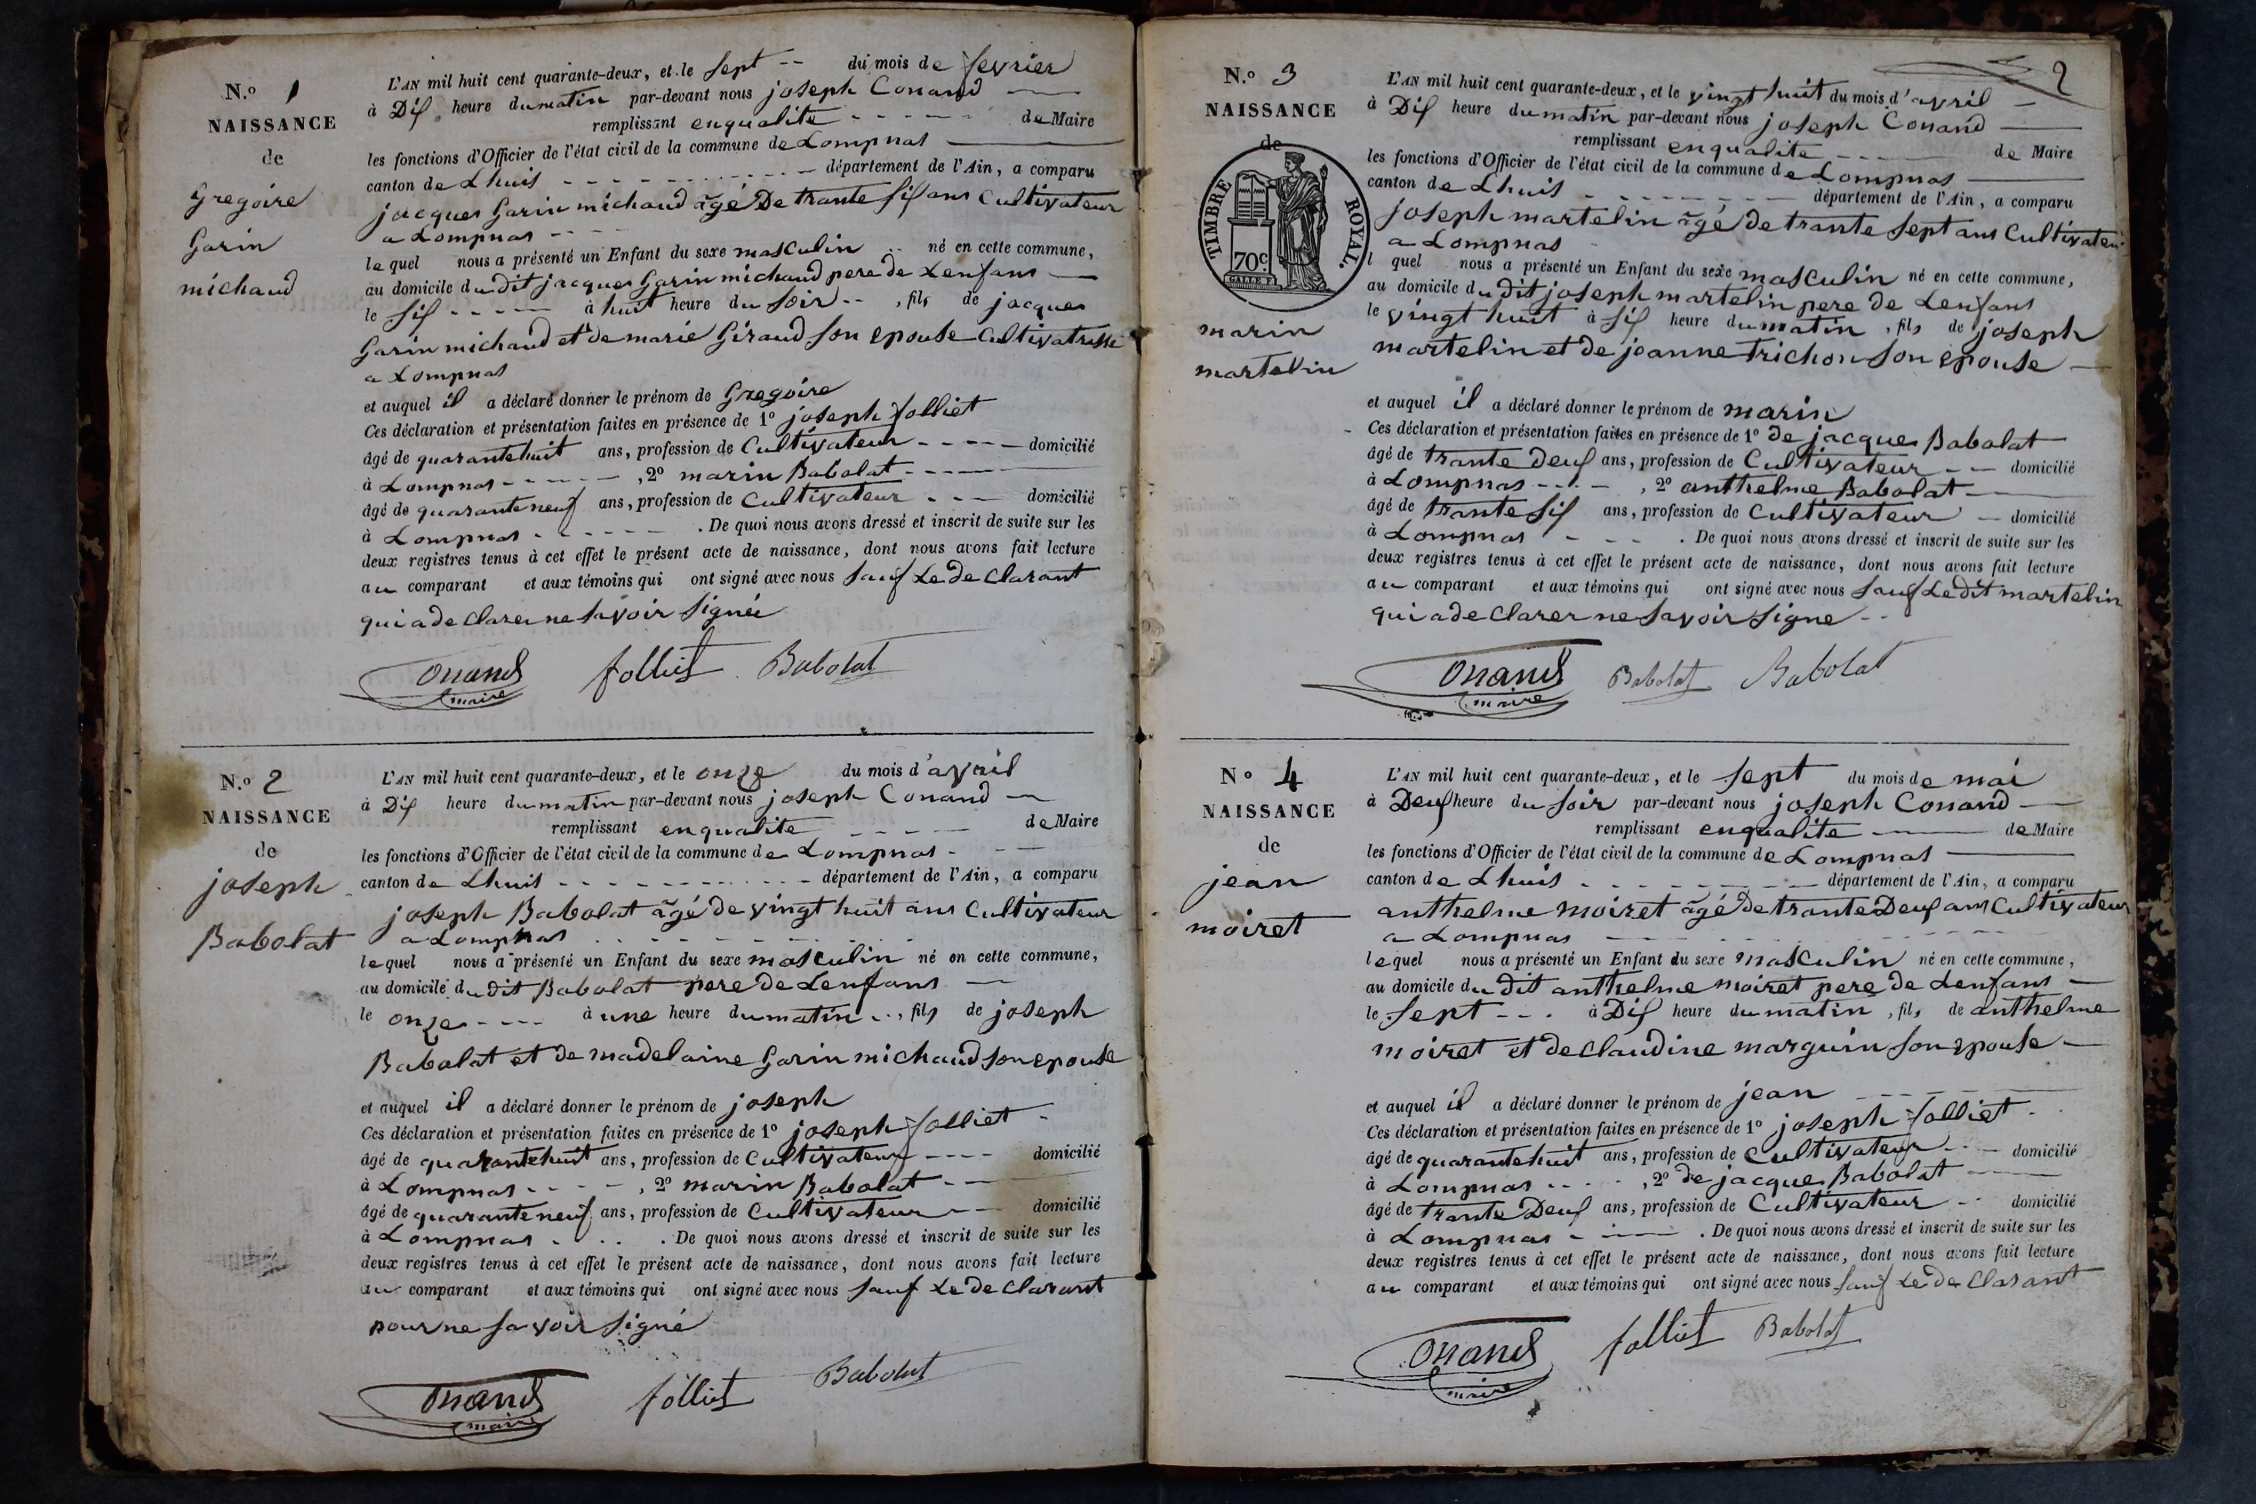 N.o 1
NAISSANCE
de
Gregoire
Garin
michaud
L'AN mil huit cent quarante-deux, et le sept -- du mois de fevrier
à Dix heure du matin par-devant nous joseph Conand
remplissant enqualite - - - - - - de Maire
les fonctions d'Officier de l'état civil de la commune de Lompnas
canton de Lhuis - - - - - - - - - - département de l'Ain, a comparu
jacques Garin michaud âgé De trante six ans Cultivateur
a Lompnas - - - -
lequel nous a présenté un Enfant du sexe masculin né en cette commune,
au domicile du dit jacques Garin michaud pere de Lenfans
le six - - - - - à huit heure du soir -- , fils de jacques
Garin michaud et de marie Giraud son epouse Cultivatrisse
a Lompnas
et auquel il a déclaré donner le prénom de Gregoire
Ces déclaration et présentation faites en présence de 1o joseph folliet
âgé de quarantehuit ans, profession de Cultivateur - - - - domicilié
à Lompnas - - - - - , 2o marin Babolat - - - -
âgé de quaranteneuf ans, profession de Cultivateur - - - domicilié
à Lompnas - - - - - - . De quoi nous avons dressé et inscrit de suite sur les
deux registres tenus à cet effet le présent acte de naissance, dont nous avons fait lecture
au comparant et aux témoins qui ont signé avec nous sauf Le de Clarant
qui a de Clarer ne savoir signée
Conand folliet Babolat
maire
N.o 2
NAISSANCE
de
joseph
Babolat
L'AN mil huit cent quarante-deux, et le onze du mois d'avril
à Dix heure du matin par-devant nous joseph Conand
remplissant enqualite - - - - de Maire
les fonctions d'Officier de l'état civil de la commune de Lompnas - - -
canton de Lhuis - - - - - - - - - - - département de l'Ain, a comparu
joseph Babolat âgé de vingt huit ans Cultivateur
a Lompnas - - - - - - - - -
lequel nous a présenté un Enfant du sexe masculin né en cette commune,
au domicile du dit Babolat pere de Lenfans
le onze - - - - à une heure du matin - - , fils de joseph
Babolat et de madelaine Garin michaud son epouse
et auquel il a déclaré donner le prénom de joseph
Ces déclaration et présentation faites en présence de 1o joseph folliet -
âgé de quarantehuit ans, profession de Cultivateur - - - - domicilié
à Lompnas - - - - , 2o marin Babolat - - -
âgé de quaranteneuf ans, profession de Cultivateur - - domicilié
à Lompnas - - - . De quoi nous avons dressé et inscrit de suite sur les
deux registres tenus à cet effet le présent acte de naissance, dont nous avons fait lecture
au comparant et aux témoins qui ont signé avec nous sauf Le de Clarant
pour ne savoir signé
Conand folliet Babolat
maire
2
N.o 3
NAISSANCE
de
TIMBRE ROYAL.
70c
marin
martelin
L'AN mil huit cent quarante-deux, et le vingt huit du mois d'avril -
à Dix heure du matin par-devant nous joseph Conand
remplissant enqualite - - - de Maire
les fonctions d'Officier de l'état civil de la commune de Lompnas
canton de Lhuis - - - - - - - département de l'Ain, a comparu
joseph martelin âgé de trante sept ans Cultivateur
a Lompnas
l quel nous a présenté un Enfant du sexe masculin né en cette commune,
au domicile du dit joseph martelin pere de Lenfans
le vingt huit à six heure du matin , fils de joseph
martelin et de jeanne trichon son epouse -
et auquel il a déclaré donner le prénom de marin
Ces déclaration et présentation faites en présence de 1o de jacque Babolat
âgé de trante Deux ans, profession de Cultivateur - - domicilié
à Lompnas - - - - , 2o anthelme Babolat
âgé de trante six ans, profession de Cultivateur - domicilié
à Lompnas - - - - . De quoi nous avons dressé et inscrit de suite sur les
deux registres tenus à cet effet le présent acte de naissance, dont nous avons fait lecture
au comparant et aux témoins qui ont signé avec nous sauf Le dit martelin
qui a de Clarer ne savoir signe - -
Conand Babolat Babolat
maire
No 4
NAISSANCE
de
jean
moiret
L'AN mil huit cent quarante-deux, et le sept du mois de mai
à Deux heure du soir par-devant nous joseph Conand
remplissant enqualite de Maire
les fonctions d'Officier de l'état civil de la commune de Lompnas
canton de Lhuis - - - - - - - département de l'Ain, a comparu
anthelme moiret âgé de trante Deux ans Cultivateur
a Lompnas - - - - - - - - -
lequel nous a présenté un Enfant du sexe masculin né en cette commune,
au domicile du dit anthelme moiret pere de Lenfans -
le sept - - - à Dix heure du matin , fils de anthelme
moiret et de claudine marguin son epouse -
et auquel il a déclaré donner le prénom de jean - - -
Ces déclaration et présentation faites en présence de 1o joseph folliet -
âgé de quarantehuit ans, profession de Cultivateur - - domicilié
à Lompnas - - - , 2o de jacque Babolat
âgé de trante Deux ans, profession de Cultivateur - - domicilié
à Lompnas - - . De quoi nous avons dressé et inscrit de suite sur les
deux registres tenus à cet effet le présent acte de naissance, dont nous avons fait lecture
au comparant et aux témoins qui ont signé avec nous sauf Le de Clarant
Conand folliet Babolat
maire